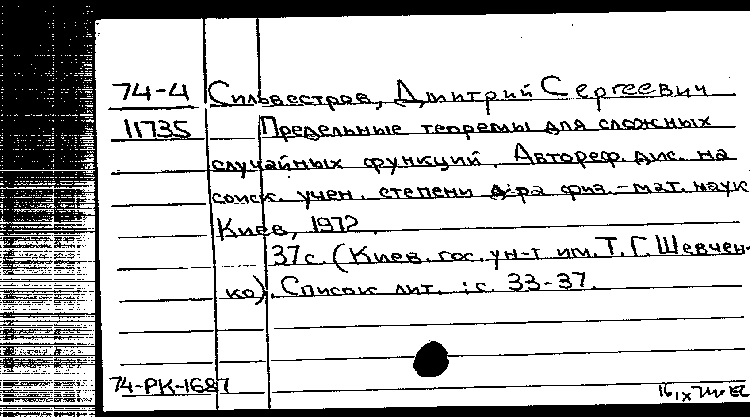 74-4 Сильвестров, Дмитрий Сергеевич
11735 Предельные теоремы для сложных
случайных функций. Автореф. дис. на
соиск. учен. степени д-ра физ.-мат. наук
Киев, 1972.
37с. (Киев. гос. ун-т им. Т.Г. Шевчен-
ко). Список лит.: с. 33-37.
74-РК-1687